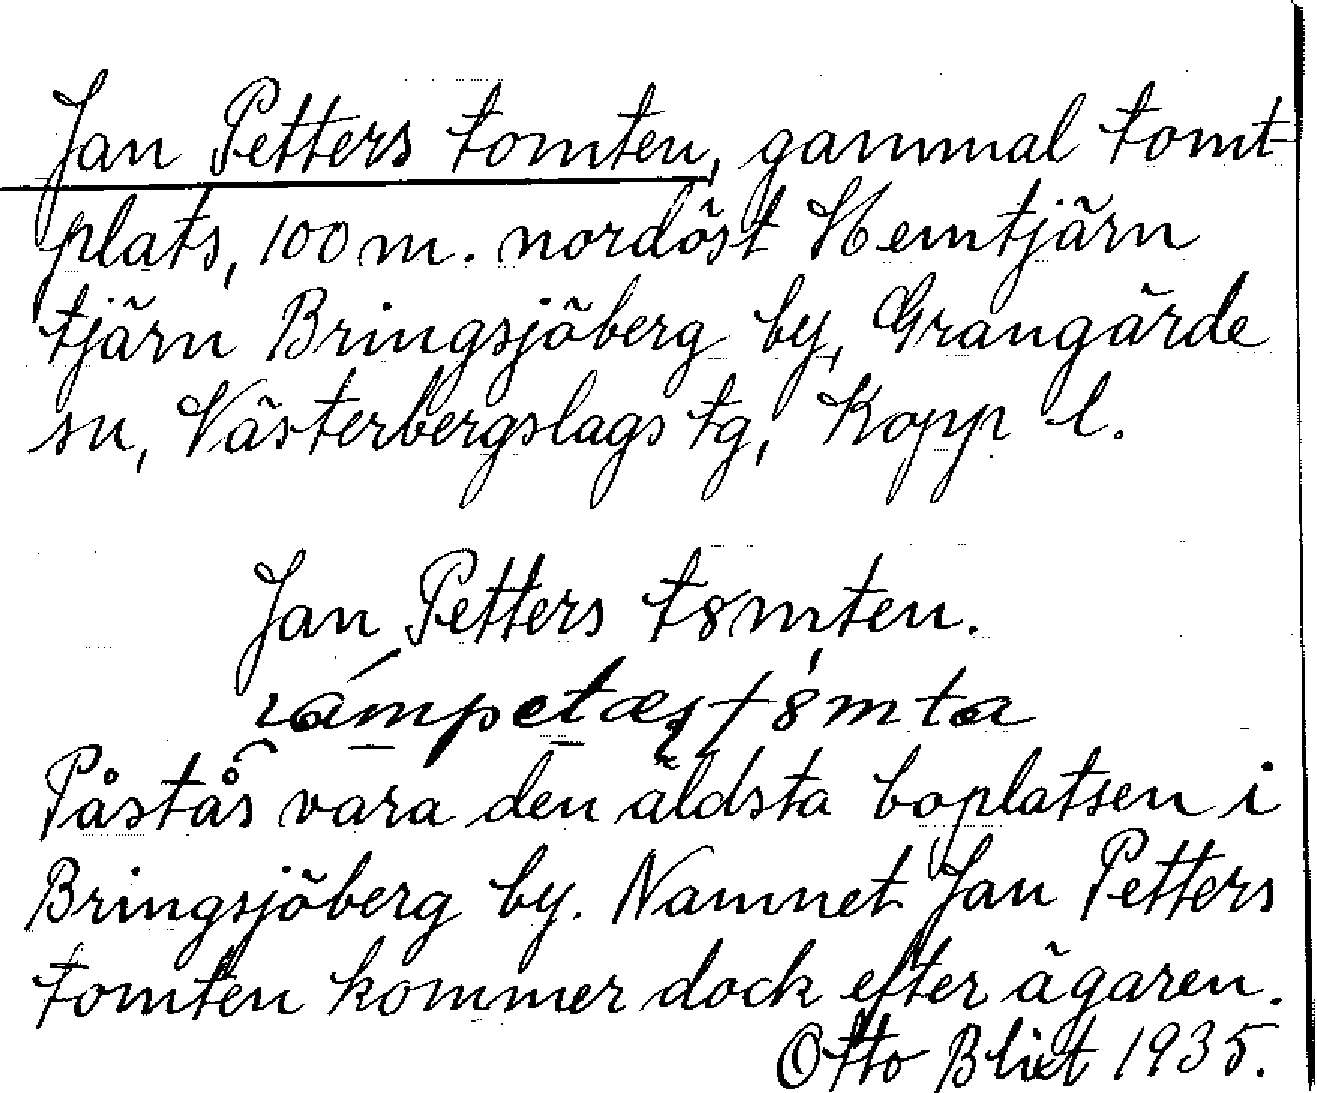 Jan Petters tomten, gammal tomt-
plats, 100 m. nordöst Hemtjärn
tjärn Bringsjöberg by, Grangärde
sn, Västerbergslags tg, Kopp l.
Jan Petters t8mten.
Påstås vara den äldsta boplatsen i
Bringsjöberg by. Namnet Jan Petters
tomten kommer dock efter ägaren.
Otto Blixt 1935.